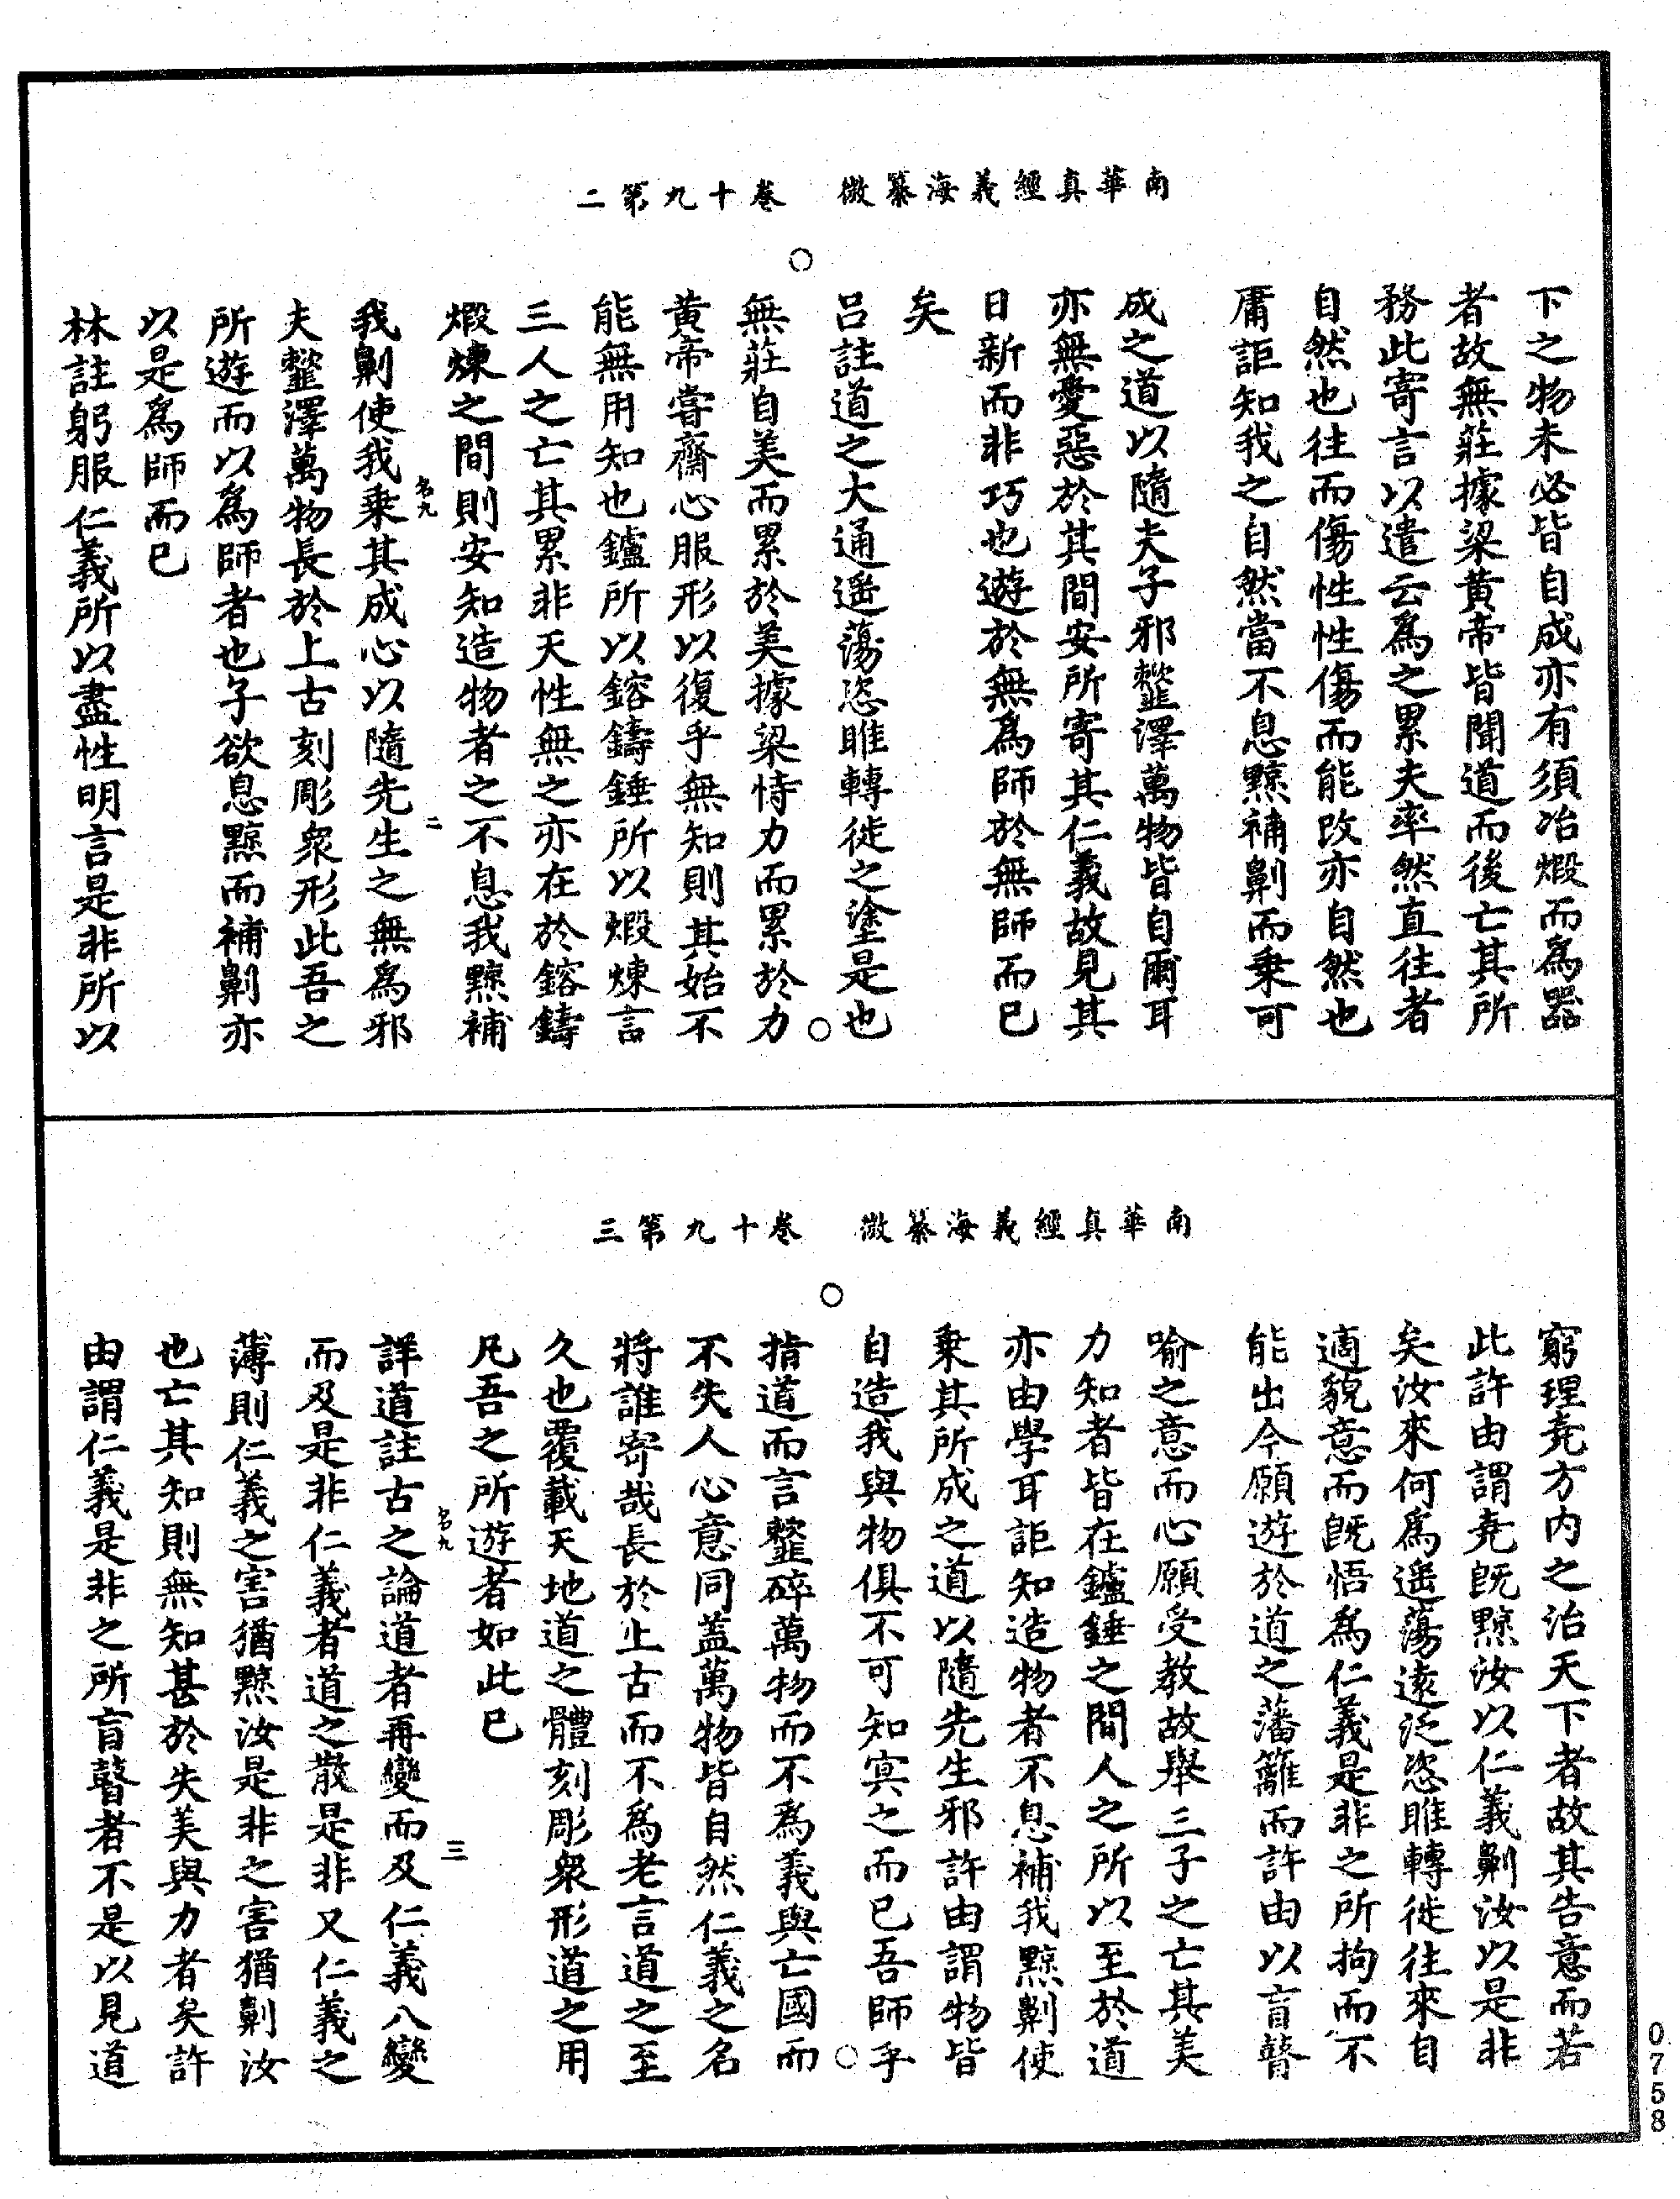 南華真經義海纂微　卷十九第二
下之物未必皆自成亦有須冶煅而為器
者故無莊據梁黃帝皆聞道而後亡其所
務此寄言以遣云為之累夫率然直往者
自然也往而傷性性傷而能改亦自然也
庸詎知我之自然當不息黥補劓而乗可
成之道以隨夫子邪𩐎澤萬物皆自爾耳
亦無愛惡於其間安所寄其仁義故見其
日新而非巧也遊於無為師於無師而已
矣
呂註道之大通遥蕩恣睢轉徙之塗是也
無莊自美而累於美據梁恃力而累於力
黃帝嘗齋心服形以復乎無知則其始不
能無用知也鑪所以鎔鑄錘所以煅煉言
三人之亡其累非天性無之亦在於鎔鑄
煅煉之間則安知造物者之不息我黥補
我劓使我乗其成心以隨先生之無為邪
夫𩐎澤萬物長於上古刻彫衆形此吾之
所遊而以為師者也子欲息黥而補劓亦
以是為師而已
林註躬服仁義所以盡性明言是非所以
南華真經義海纂微　卷十九第三
窮理堯方内之治天下者故其告意而若
此許由謂堯旣黥汝以仁義劓汝以是非
矣汝來何為遥蕩逺泛恣睢轉徙往來自
適貌意而旣悟為仁義是非之所拘而不
能出今願遊於道之藩籬而許由以盲瞽
喻之意而心願受教故舉三子之亡其美
力知者皆在鑪錘之間人之所以至於道
亦由學耳詎知造物者不息補我黥劓使
乗其所成之道以隨先生邪許由謂物皆
自造我與物俱不可知㝠之而已吾師乎
指道而言𩐎碎萬物而不為義與亡國而
不失人心意同盖萬物皆自然仁義之名
將誰寄哉長於上古而不為老言道之至
久也覆載天地道之體刻彫衆形道之用
凡吾之所遊者如此已
詳道註古之論道者再變而及仁義八變
而及是非仁義者道之散是非又仁義之
薄則仁義之害猶黥汝是非之害猶劓汝
也亡其知則無知甚於失美與力者矣許
由謂仁義是非之所盲瞽者不是以見道
名九
二
名九
三
0758